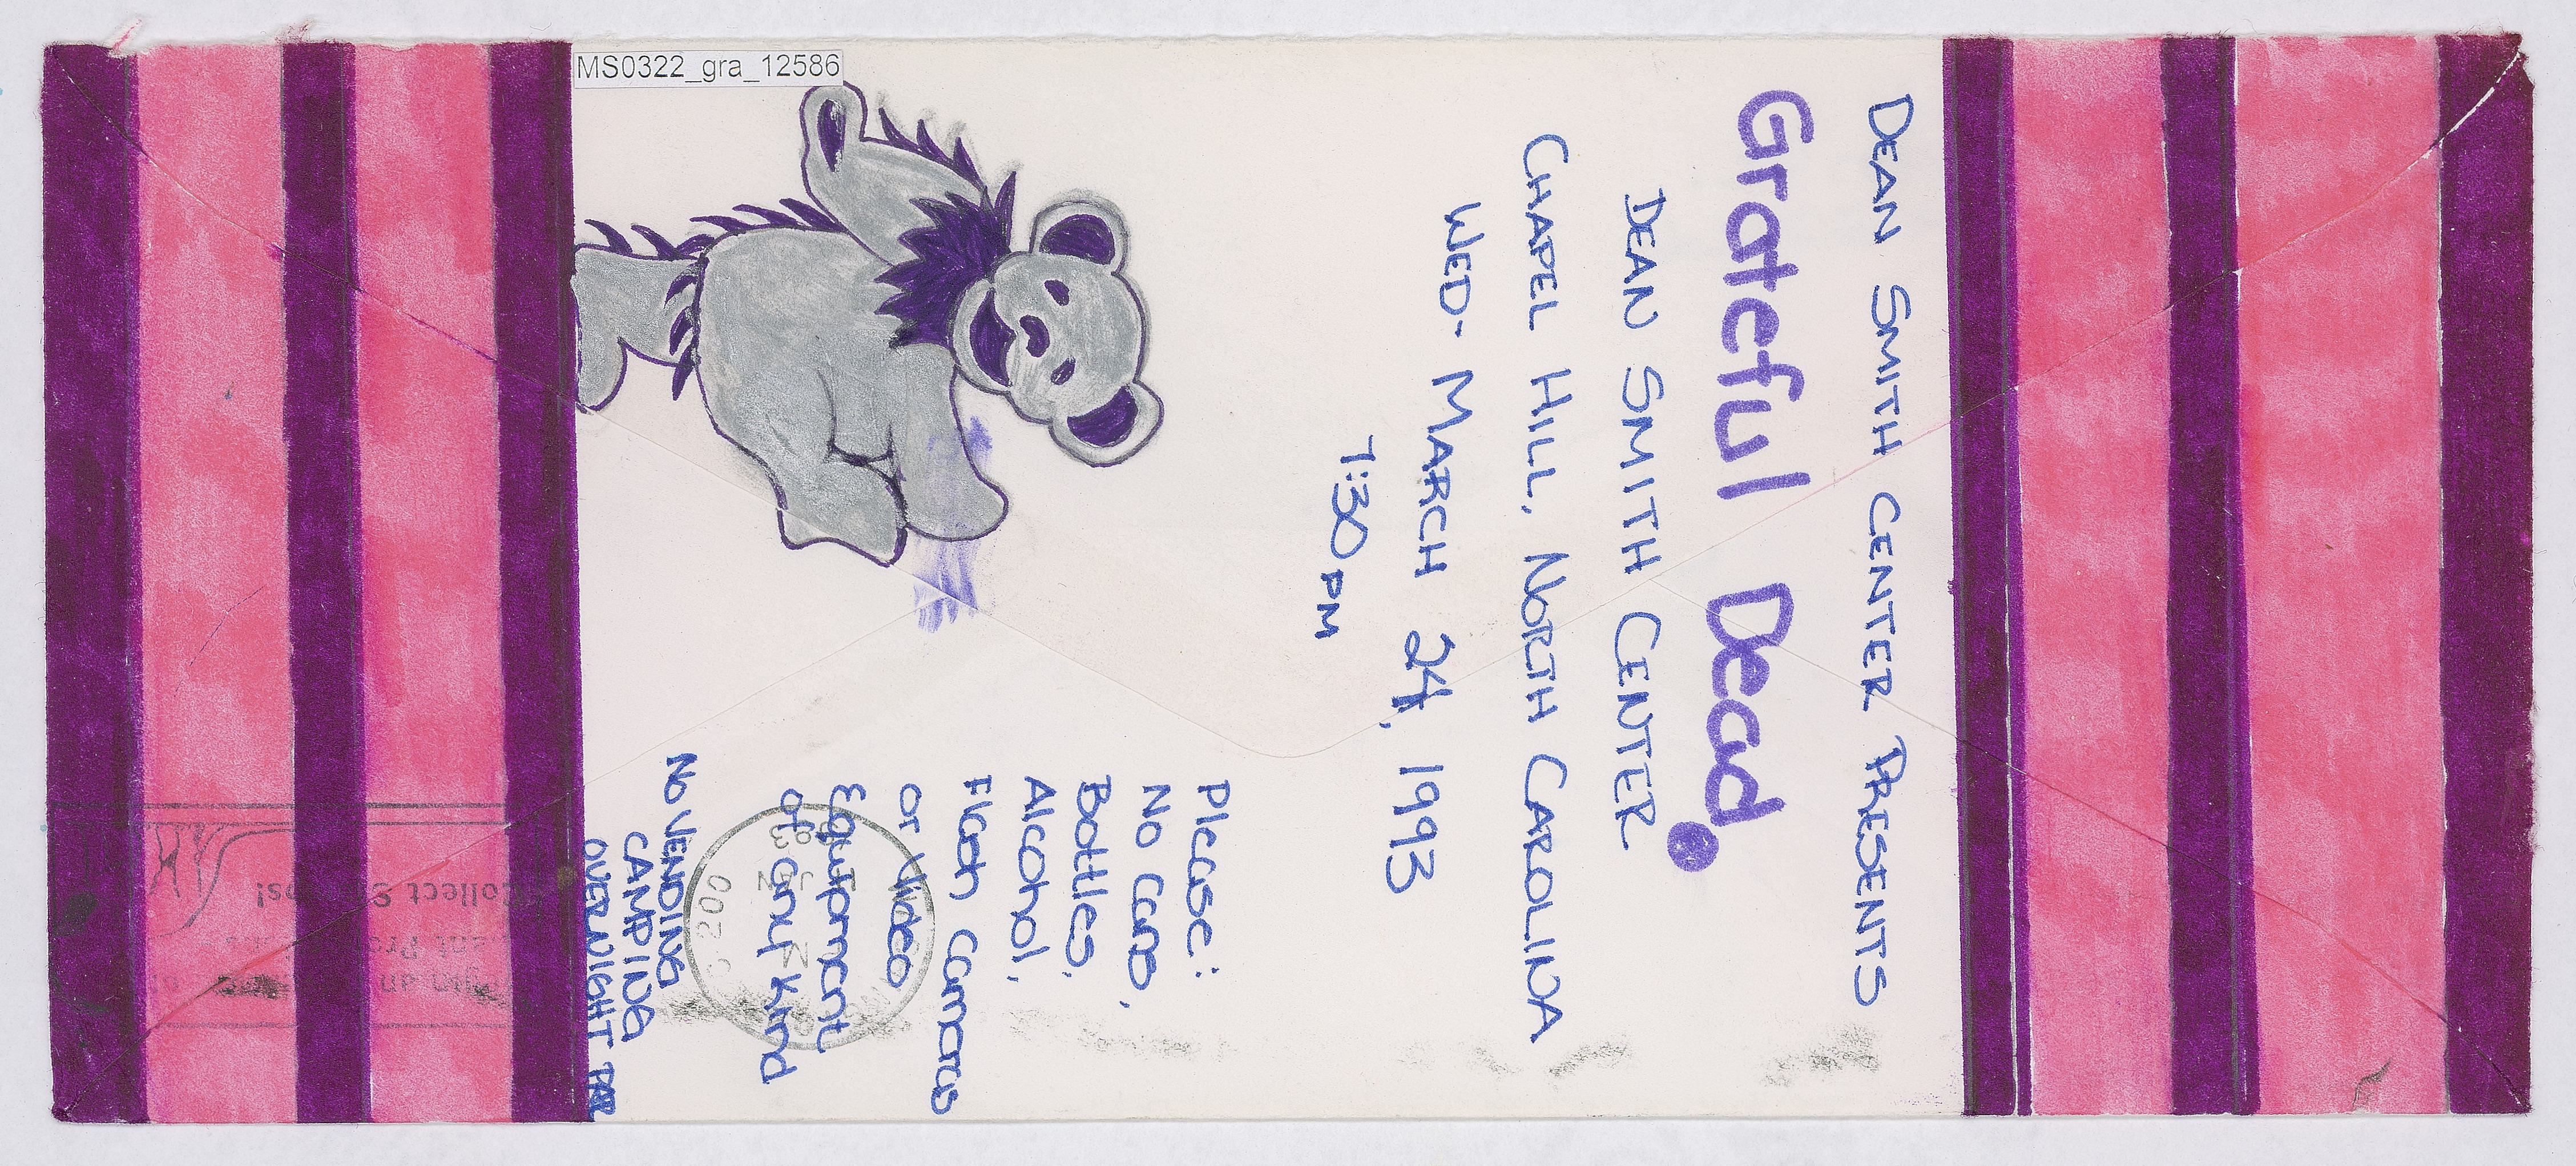 MS0322_gra_12586
DEAN SMITH CENTER PRESENTS
Grateful Dead
DEAN SMITH CENTER
CHAPEL HILL, NORTH CAROLINA
WED. MARCH 24, 1993
7:30 PM
Please:
No Cans,
Bottles,
Alcohol,
Flash Cameras
or Video
Equipment
of any kind
NO VENDING
CAMPING
OVERNIGHT
Collect
JAN
200